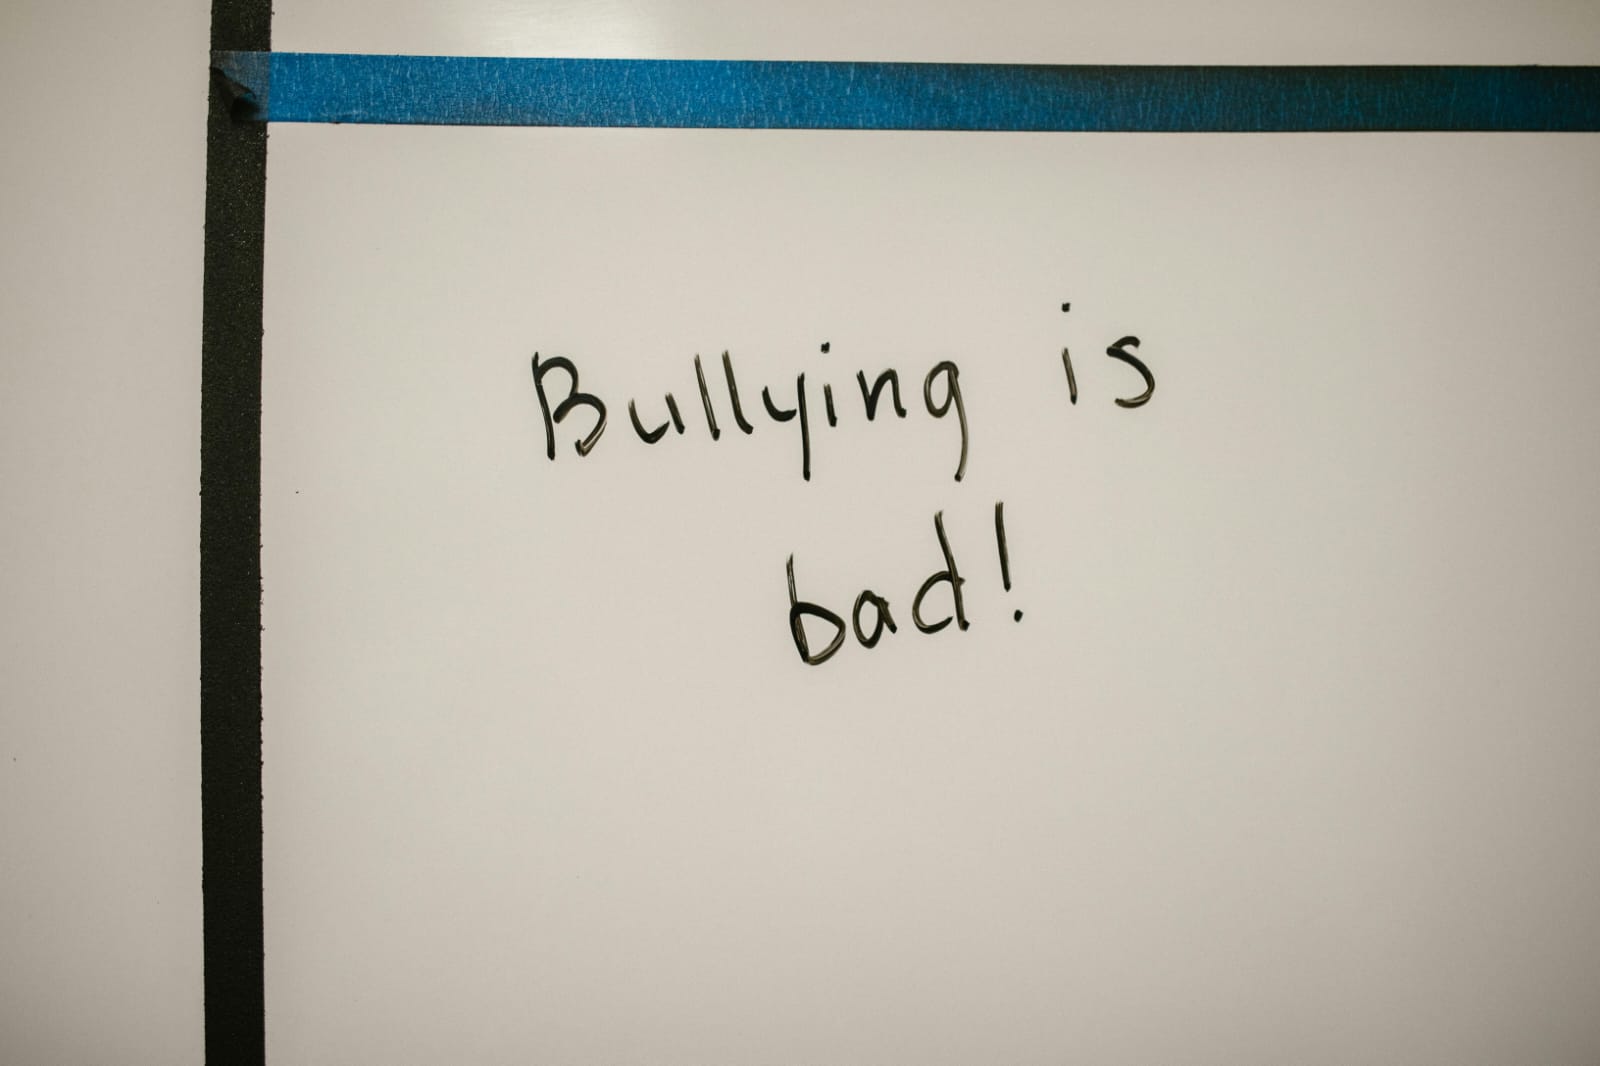 Bullying is
bad!